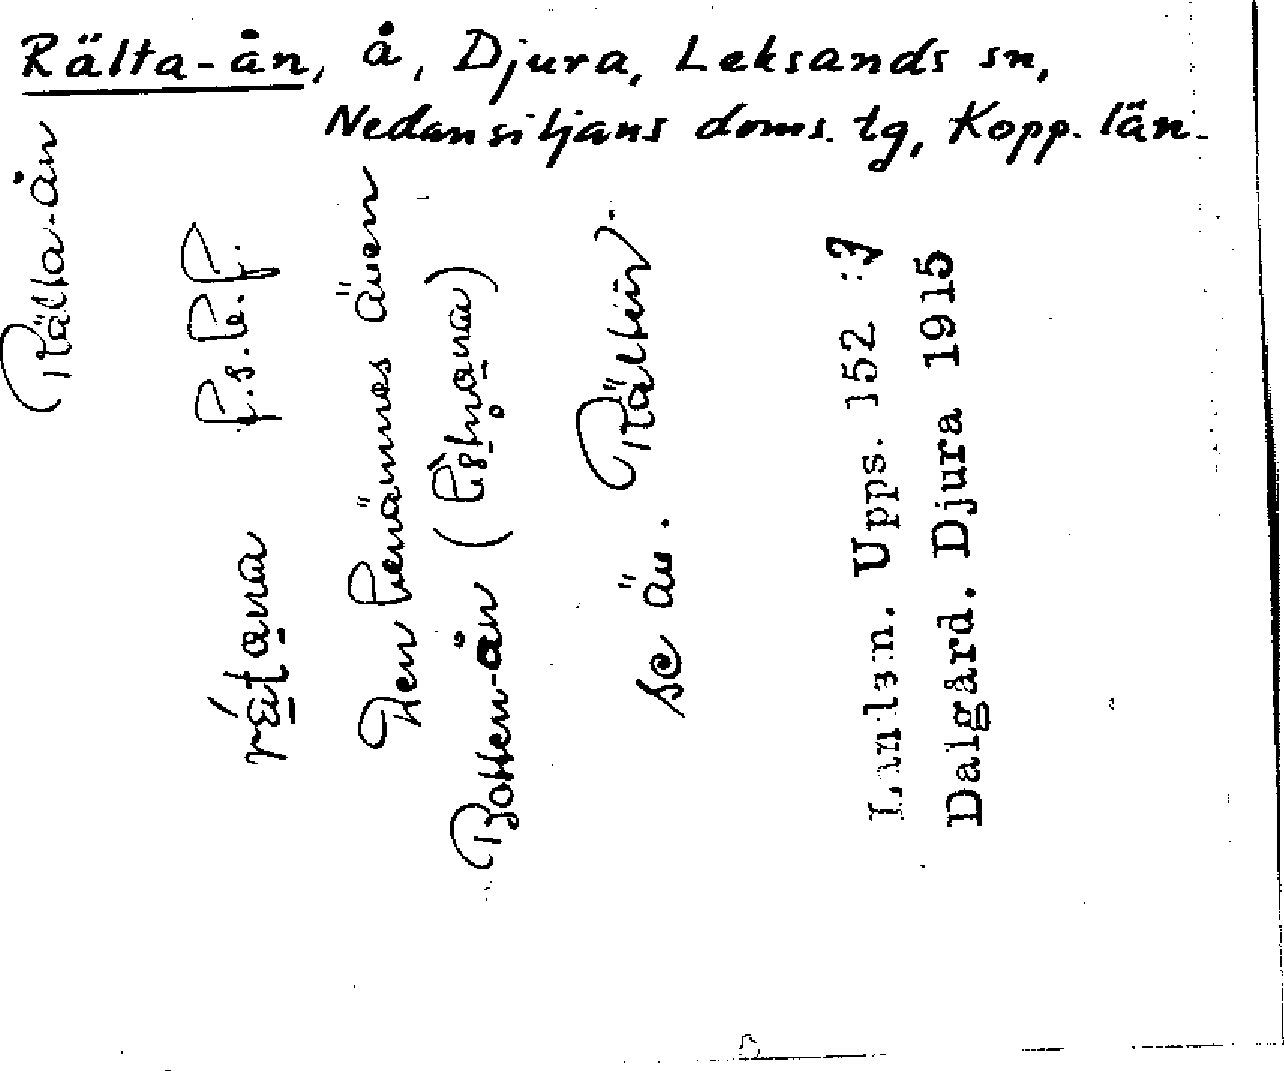 Rälta-ån, å, Djura, Leksands sn,
Nedansiljans doms. tg, Kopp. län.
Rälta-ån
f.s.
Den benämnes även
Botten-ån
se äv.
Lantm. Upps. 152 :
Dalgård. Djura 1915